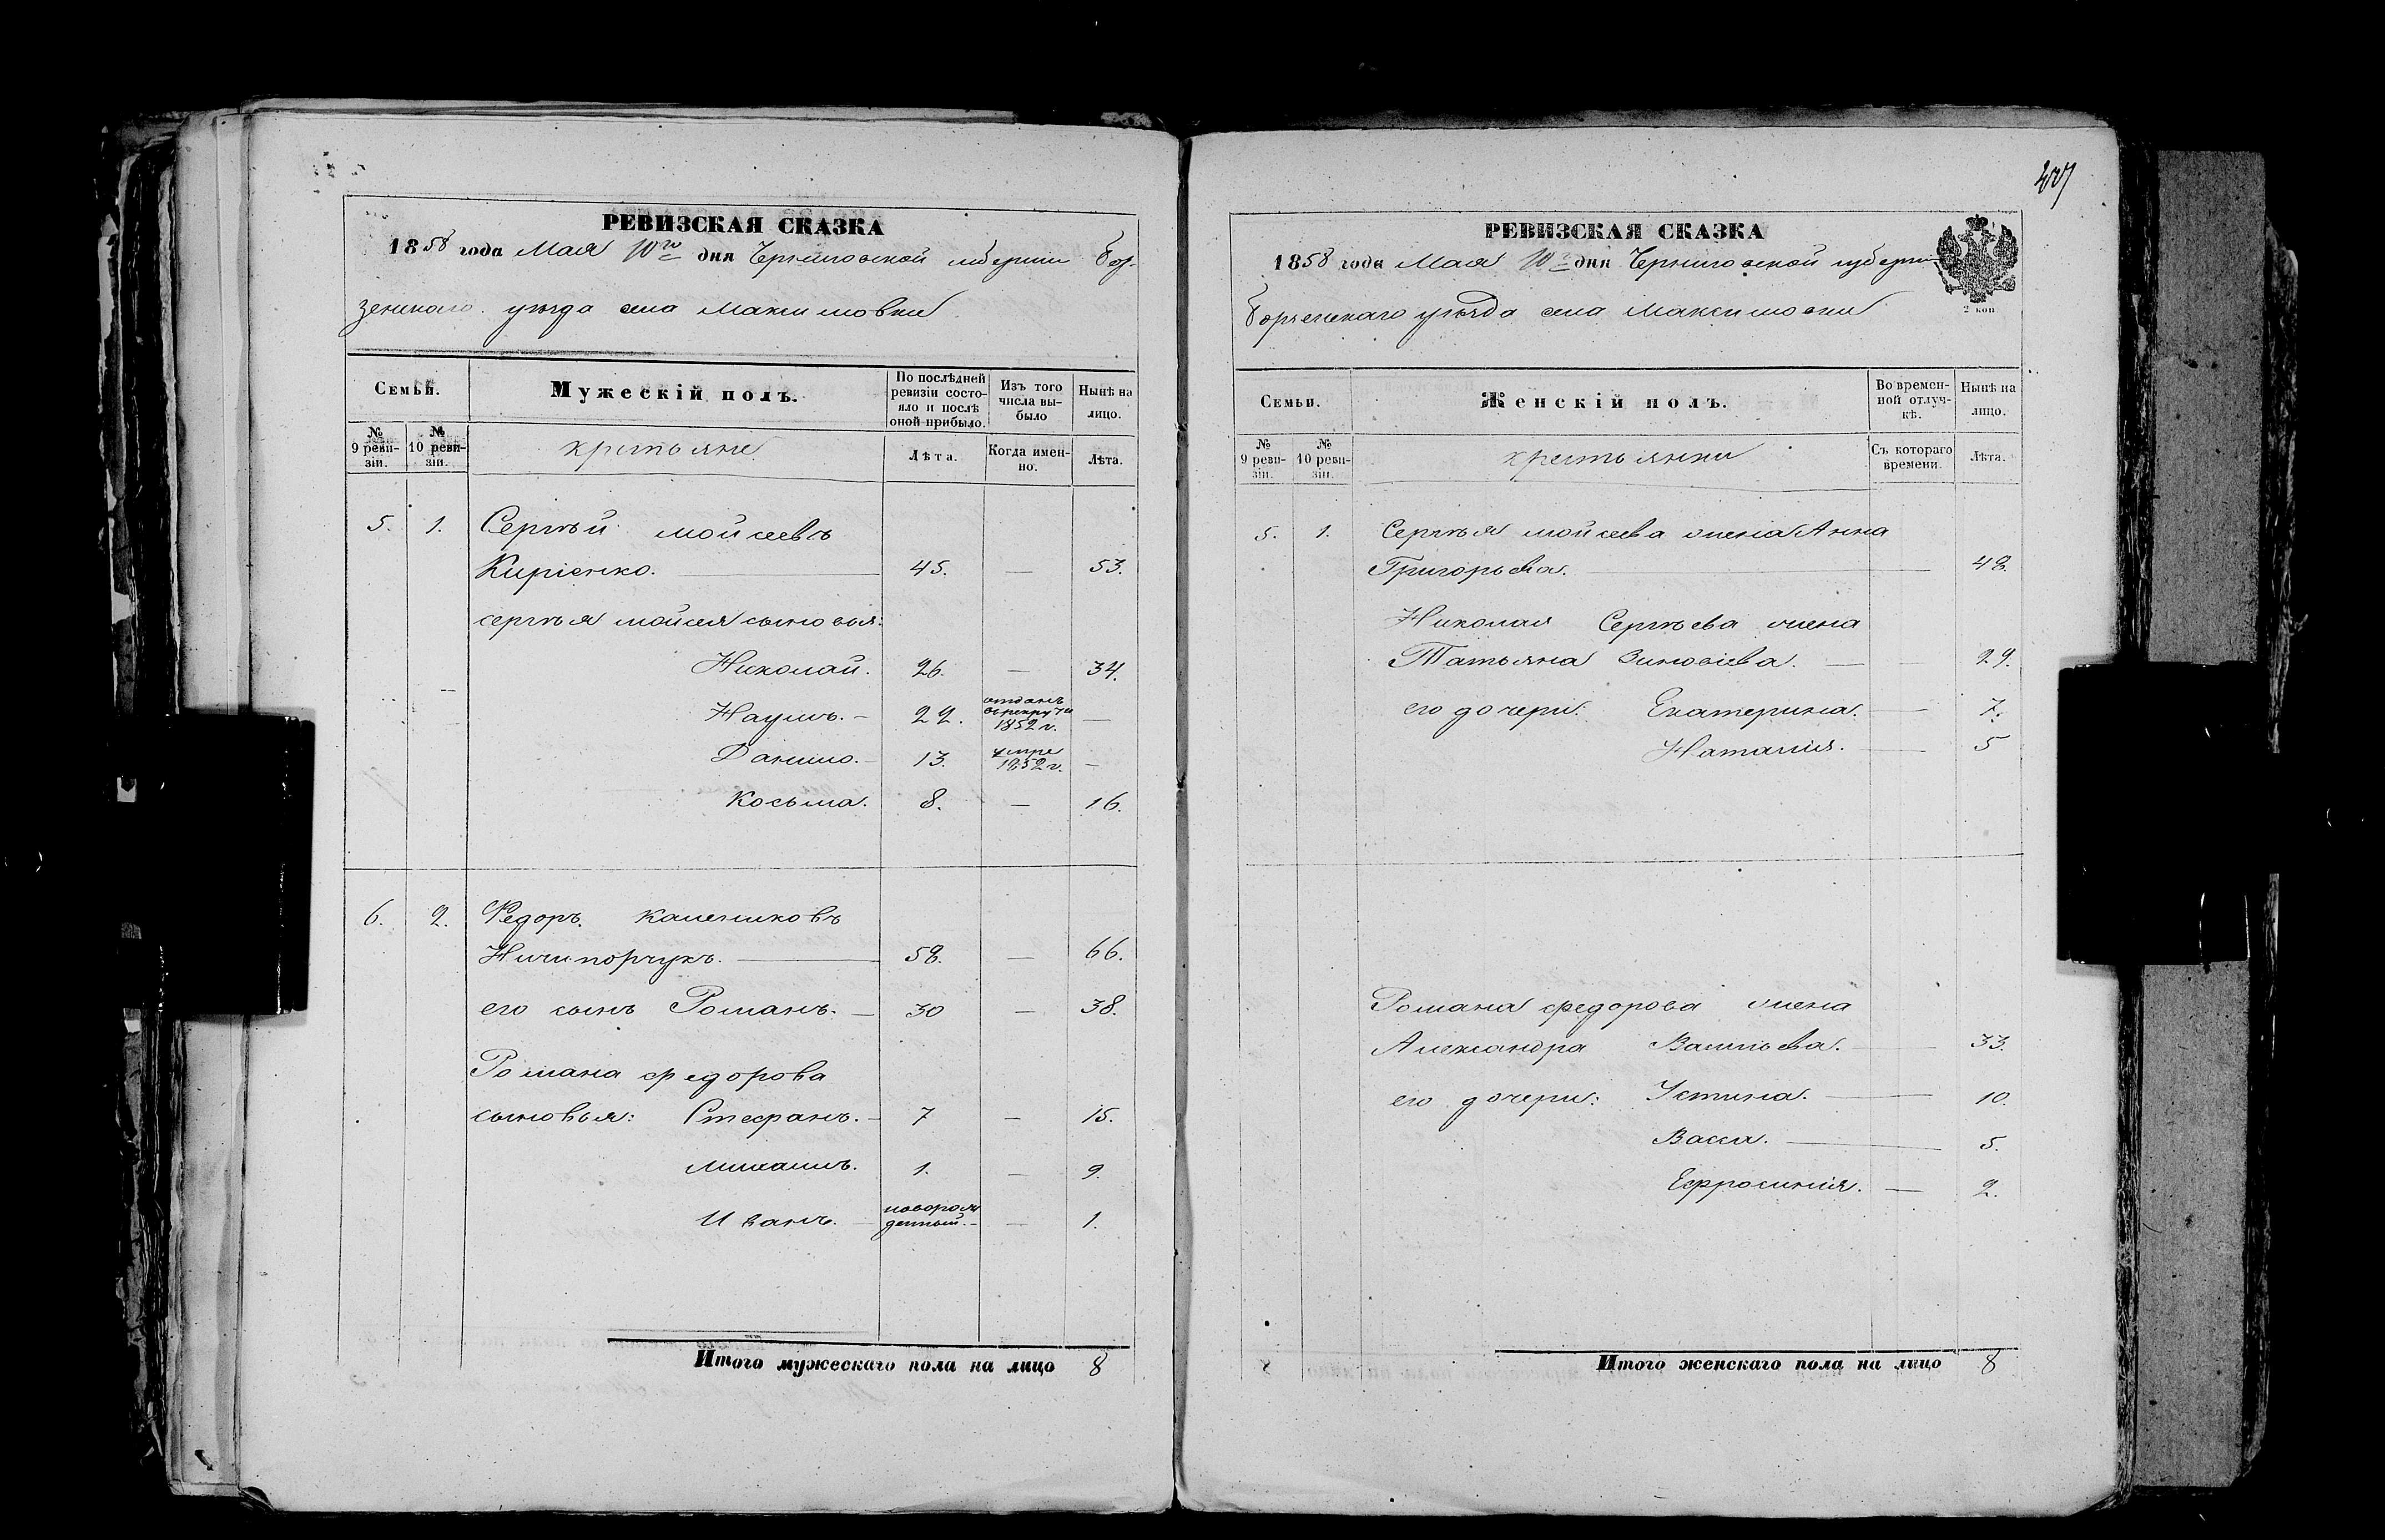 РЕВИЗСКАЯ СКАЗКА
1858 года Мая 10го дня Черниговской губернии Бор-
зенскаго уѣзда села Максимовки
Семьи.
Мужескій полъ.
По послѣдней ревизіи состо-яло и послѣ оной прибыло.
Изъ того числа вы-было
Нынѣ на лицо.
№ 9 реви-зіи.
№ 10 реви-зіи.
крестьяне
Лѣта.
Когда имен-но.
Лѣта.
5. 1. Сергѣй Мойсеевъ
Кириенко. 45. — 53.
Сергѣя Мойсея сыновья:
Николай. 26. — 34.
Наумъ. 22. отданъ в рекруты 1852 г. —
Данило. 13. умре 1852 г. —
Косьма. 8. — 16.
6. 2. Федоръ Калениковъ
Ничипорчукъ. 58. — 66.
его сынъ Романъ. 30 — 38.
Романа Федорова
сыновья: Стефанъ. 7 — 15.
Михаилъ. 1. — 9.
Иванъ. новорож денный. — 1.
Итого мужескаго пола на лицо 8
РЕВИЗСКАЯ СКАЗКА
1858 года Мая 10го дня Черниговской губерни
Борзенскаго уѣзда села Максимовки
2 коп
Семьи.
Женскій полъ.
Во времен-ной отлуч-кѣ.
Нынѣ на лицо.
№ 9 реви-зіи.
№ 10 реви-зіи.
крестьянки
Съ котораго времени.
Лѣта.
5. 1. Сергѣя Мойсеева жена Анна
Григорьева. 48.
Николая Сергѣева жена
Татьяна Зиновіева. — 29.
его дочери: Екатерина. — 7.
Наталія. 5
Романа Федорова жена
Александра Васильева. 33.
его дочери: Устина. 10.
Васса. 5.
Ефросинія. — 2.
Итого женскаго пола на лицо 8